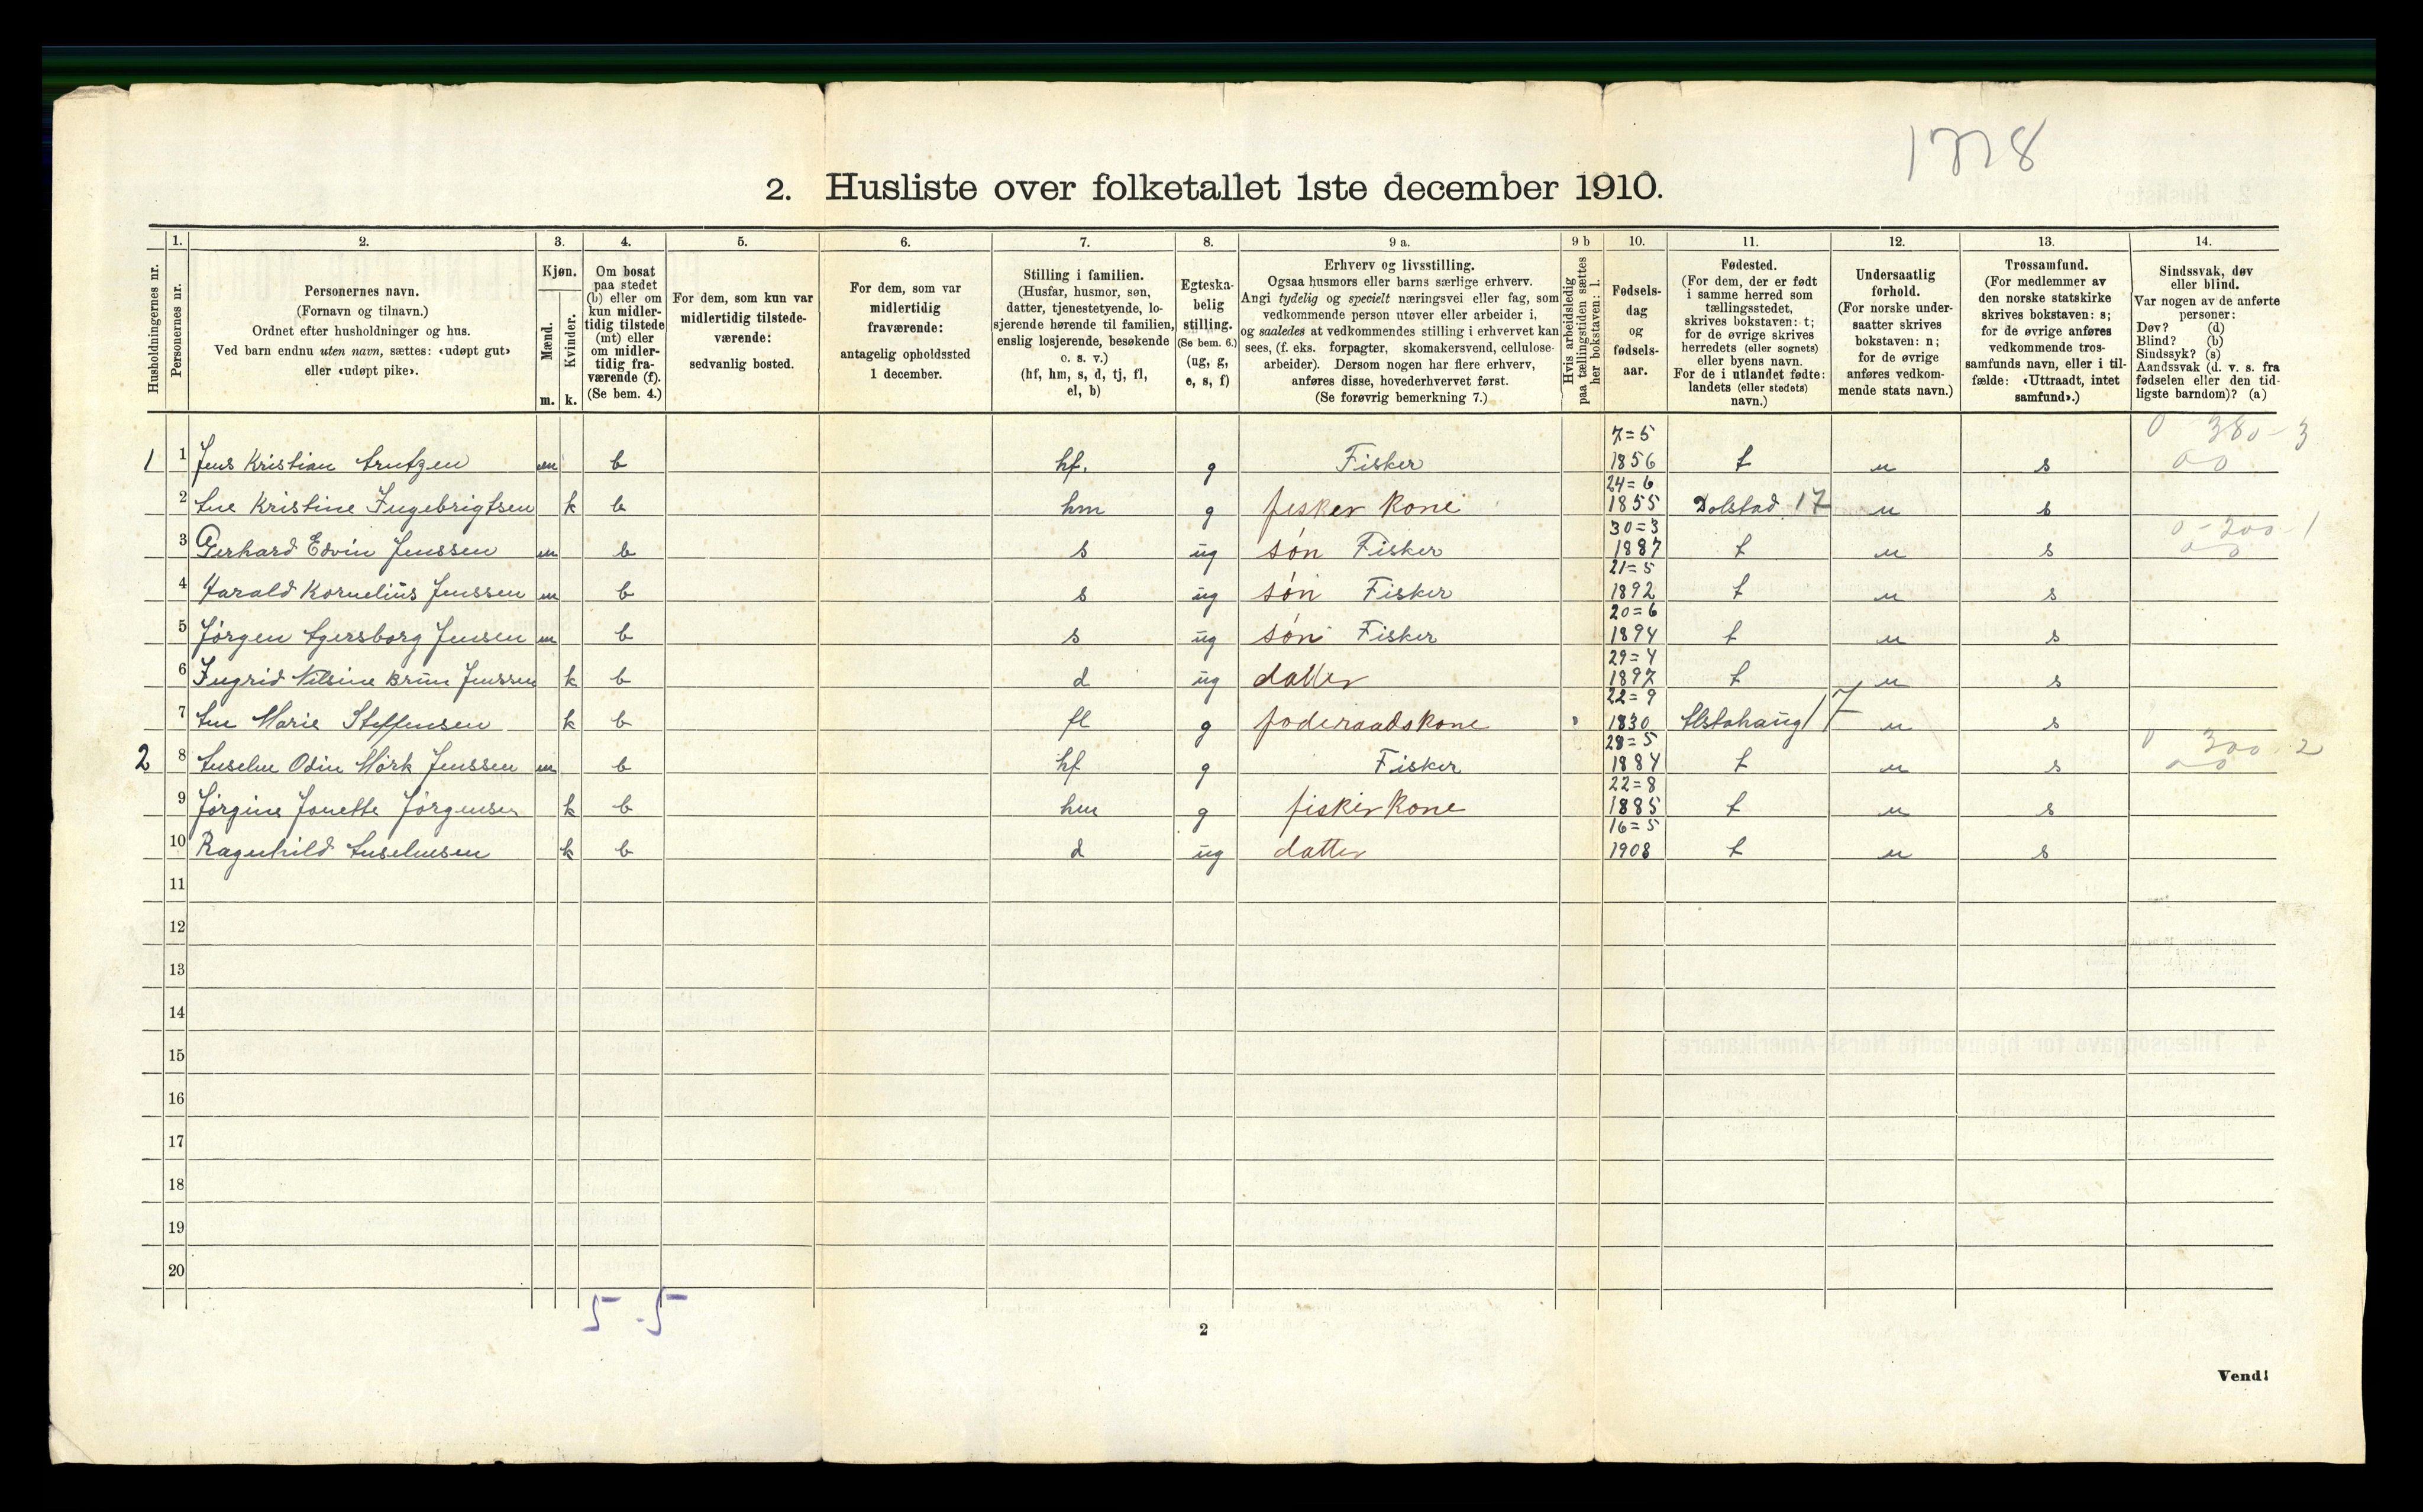 1778
2. Husliste over folketallet 1ste december 1910.
Husholdningernes nr.
1.
Personernes nr.
2.
Personernes navn.
(Fornavn og tilnavn.)
Ordnet efter husholdninger og hus.
Ved barn endnu uten navn, sættes: «udøpt gut»
eller «udøpt pike».
3.
Kjøn.
Mænd.
Kvinder.
m. k.
4.
Om bosat
paa stedet
(b) eller om
kun midler-
tidig tilstede
(mt) eller
om midler-
tidig fra-
værende (f).
(Se bem. 4.)
5.
For dem, som kun var
midlertidig tilstede-
værende:
sedvanlig bosted.
6.
For dem, som var
midlertidig
fraværende:
antagelig opholdssted
1 december.
7.
Stilling i familien.
(Husfar, husmor, søn,
datter, tjenestetyende, lo-
sjerende hørende til familien,
enslig losjerende, besøkende
o. s. v.)
(hf, hm, s, d, tj, fl,
el, b)
8.
Egteska-
belig
stilling.
(Se bem. 6.)
(ug, g,
e, s, f)
9 a.
Erhverv og livsstilling.
Ogsaa husmors eller barns særlige erhverv.
Angi tydelig og specielt næringsvei eller fag, som
vedkommende person utøver eller arbeider i,
og saaledes at vedkommendes stilling i erhvervet kan
sees, (f. eks. forpagter, skomakersvend, cellulose-
arbeider). Dersom nogen har flere erhverv,
anføres disse, hovederhvervet først.
(Se forøvrig bemerkning 7.)
9 b
Hvis arbeidsledig
paa tællingstiden sættes
her bokstaven: l.
10.
Fødsels-
dag
og
fødsels-
aar.
11.
Fødested.
(For dem, der er født
i samme herred som
tællingsstedet,
skrives bokstaven: t;
for de øvrige skrives
herredets (eller sognets)
eller byens navn.
For de i utlandet fødte:
landets (eller stedets)
navn.)
12.
Undersaatlig
forhold.
(For norske under-
saatter skrives
bokstaven: n;
for de øvrige
anføres vedkom-
mende stats navn.)
13.
Trossamfund.
(For medlemmer av
den norske statskirke
skrives bokstaven: s;
for de øvrige anføres
vedkommende tros-
samfunds navn, eller i til-
fælde: «Uttraadt, intet
samfund».)
14.
Sindssvak, døv
eller blind.
Var nogen av de anførte
personer:
Døv? (d)
Blind? (b)
Sindssyk? (s)
Aandssvak (d. v. s. fra
fødselen eller den tid-
ligste barndom)? (a)
1 1 Jens Kristian Arntzen m b hf. g Fisker 7=5 1856 t n s 0 380-3
2 Ane Kristine Ingebrigtsen k b hm g fisker kone 24=6 1855 Dolstad 17 n s
3 Gerhard Edvin Jenssen m b s ug søn Fisker 30=3 1887 t n s 0-200-1
4 Harald Kornelius Jenssen m b s ug søn Fisker 21=5 1892 t n s
5 Jørgen Agersborg Jensen m b s ug søn Fisker 20=6 1894 t n s
6 Ingrid Nilsine Brun Jenssen k b d ug datter 29=4 1897 t n s
7 Ane Marie Steffensen k b fl g foderaadskone 22=9 1830 Alstahaug 17 n s
2 8 Anselm Odin Mørk Jenssen m b hf g Fisker 28=5 1884 t n s 0 300-2
9 Jørgine Jonette Jørgensen k b hm g fisker kone 22=8 1885 t n s
10 Ragnhild Anselmsen k b d ug datter 16=5 1908 t n s
11
12
13
14
15
16
17
18
19
20
5-5
2
Vend!